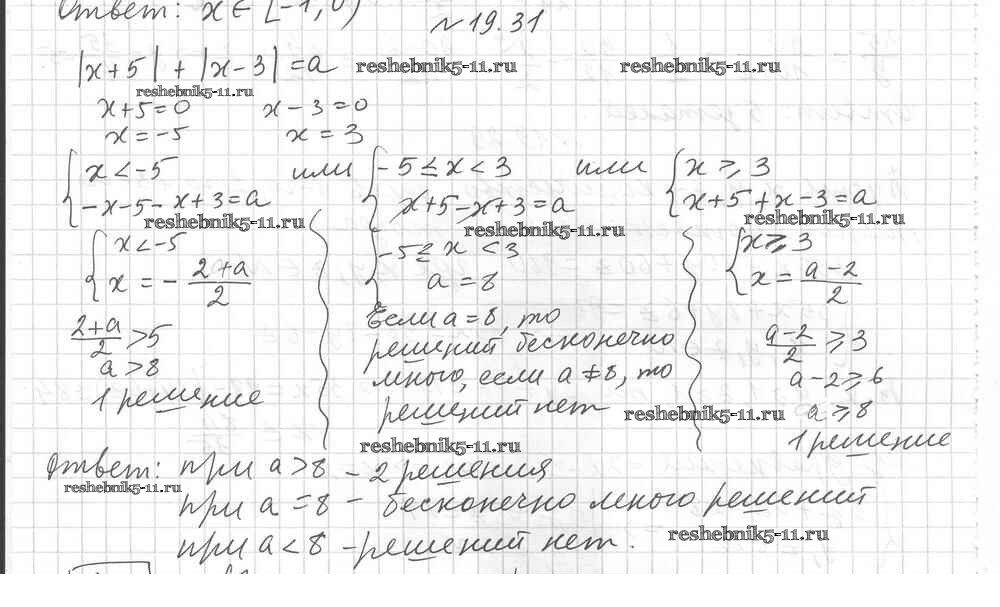 Ответ: x ∈ [-1; 0)
№ 19.31
|x+5| + |x-3| = a reshebnik5-11.ru reshebnik5-11.ru
reshebnik5-11.ru
x+5=0 x-3=0
x=-5 x=3
{ x<-5 или { -5≤x<3 или { x≥3
-x-5-x+3=a x+5-x+3=a x+5+x-3=a
reshebnik5-11.ru reshebnik5-11.ru reshebnik5-11.ru
{ x<-5 { -5≤x<3 { x≥3
x=-(2+a)/2 a=8 x=(a-2)/2
(2+a)/2>5 Если a=8, то (a-2)/2≥3
a>8 решений бесконечно a-2≥6
1 решение много, если a≠8, то a≥8
решений нет reshebnik5-11.ru 1 решение
reshebnik5-11.ru
Ответ: при a>8 - 2 решения
reshebnik5-11.ru
при a=8 - бесконечно много решений
при a<8 - решений нет.
reshebnik5-11.ru